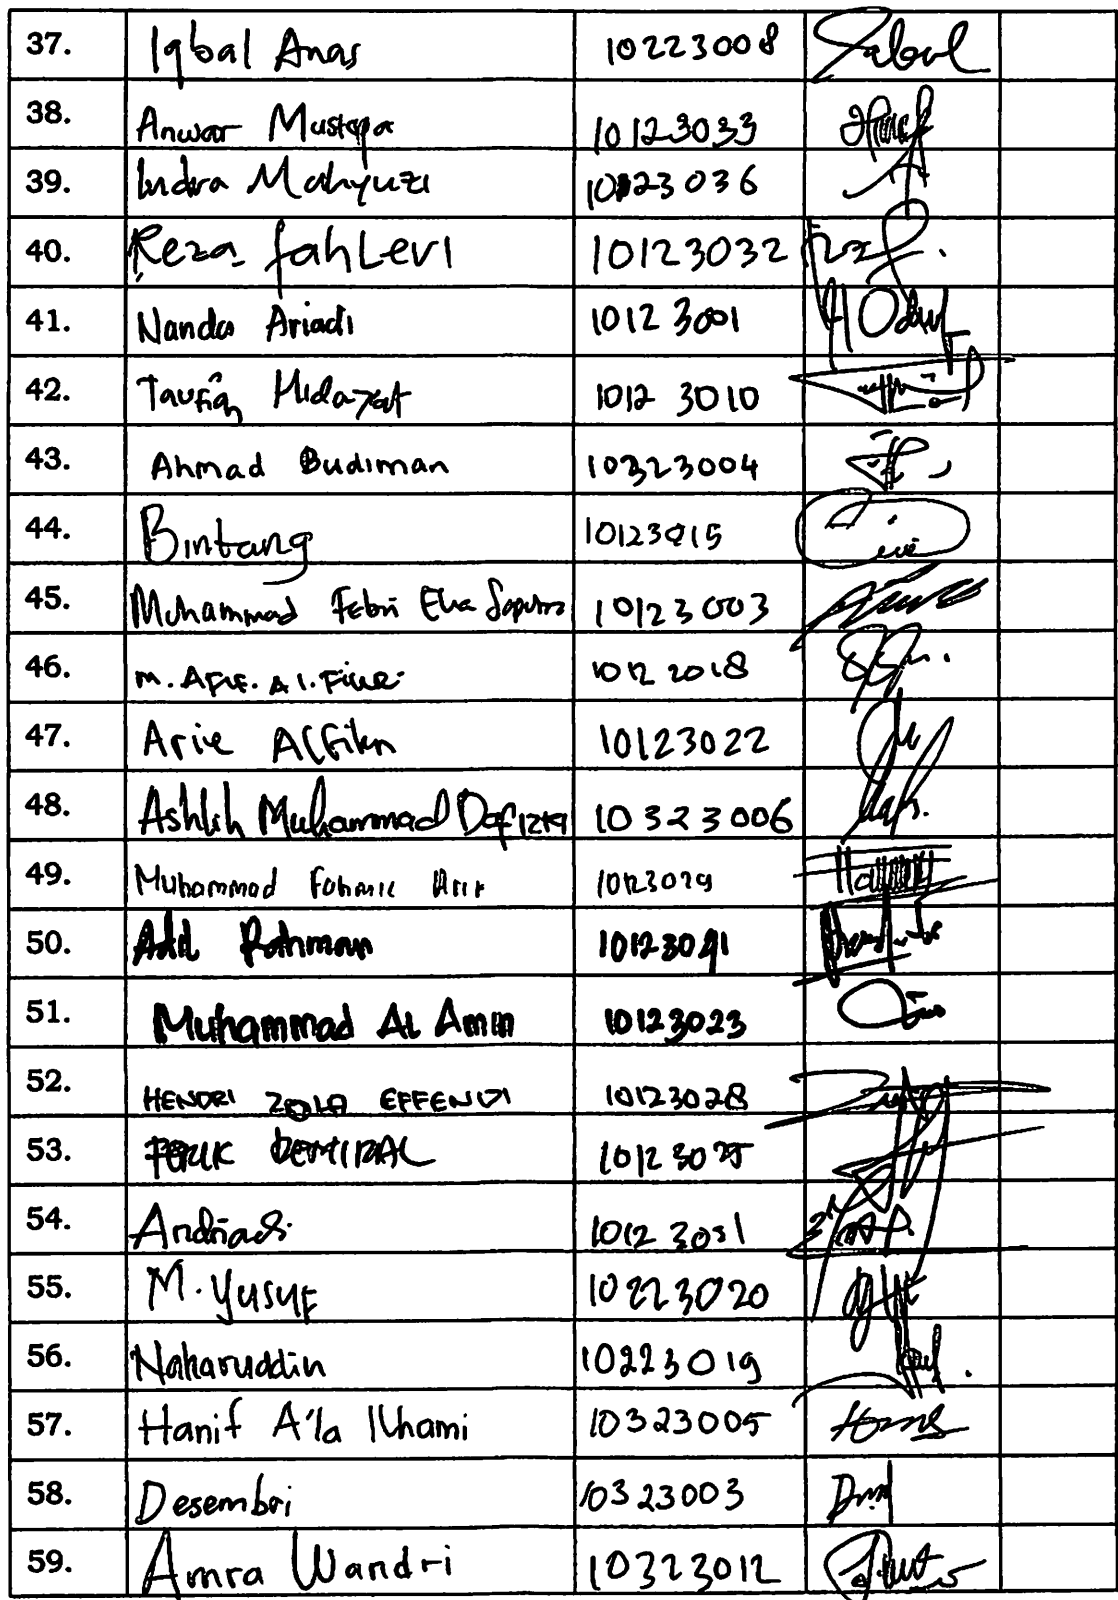 37. Iqbal Anas 10223008
38. Anwar Mustopa 10123033
39. Indra Mahyuzi 10123036
40. Reza fahLevi 10123032
41. Nanda Ariadi 10123001
42. Taufiq Hidayat 10123010
43. Ahmad Budiman 10323004
44. Bintang 10123015
45. Muhammad Febri Eka Saputra 10123003
46. M. Afif. Al. Fikri 10122018
47. Arie Alfikri 10123022
48. Ashlih Muhammad Dafizta 10323006
49. Muhammad 10123029
50. Adil Rahman 10123041
51. Muhammad Al Amin 10123023
52. HENDRI ZOLA EFFENDI 10123028
53. DEMIRAL 10123025
54. Andriadi 10123031
55. M. Yusuf 10223020
56. Naharuddin 10223019
57. Hanif A'la Ilhami 10323005
58. Desembri 10323003
59. Amra Wandri 10323012